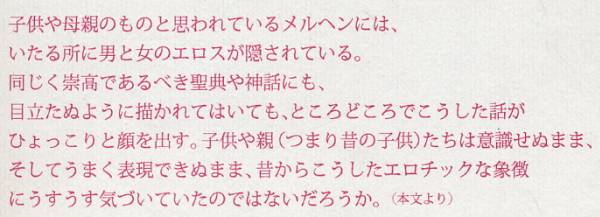 子供や母親のものと思われているメルヘンには、
いたる所に男と女のエロスが隠されている。
同じく崇高であるべき聖典や神話にも、
目立たぬように描かれてはいても、ところどころでこうした話が
ひょっこりと顔を出す。子供や親（つまり昔の子供）たちは意識せぬまま、
そしてうまく表現できぬまま、昔からこうしたエロチックな象徴
にうすうす気づいていたのではないだろうか。（本文より）